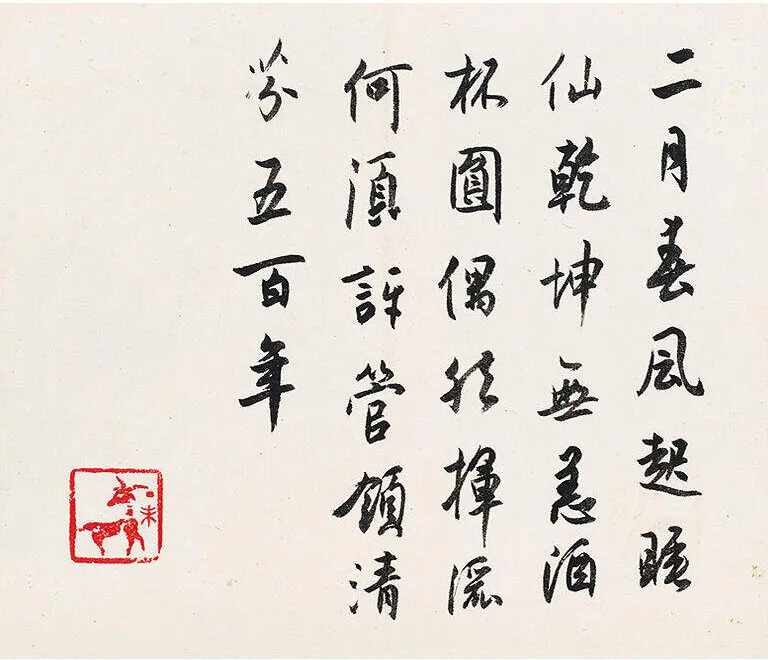 二月春風起睡
仙乾坤無恙酒
杯圓偶然揮灑
何須訝管領清
芬五百年
未